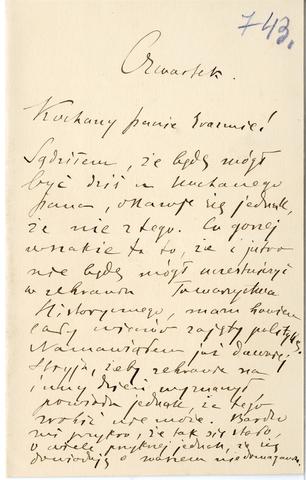 743.
Czwartek.
Kochany panie Erazmie!
Sądziłem, że będę mógł
być dziś u kochanego
pana, okazuje się jednak,
że nic z tego. Co gorzej
wszakże to to, że i jutro
nie będę mógł uczestniczyć
w zebraniu Towarzystwa
Historycznego, mam bowiem
cały wieczór zajęty
Namawiałem już dawniej
Stryja, żeby zebranie na
inny dzień wyznaczył
powiada jednak, że tego
zrobić nie może. Bardzo
mi przykro, że tak się stało,
o wiele przykrzej jednak, że się
dowiaduję o waszem niedomaganiu